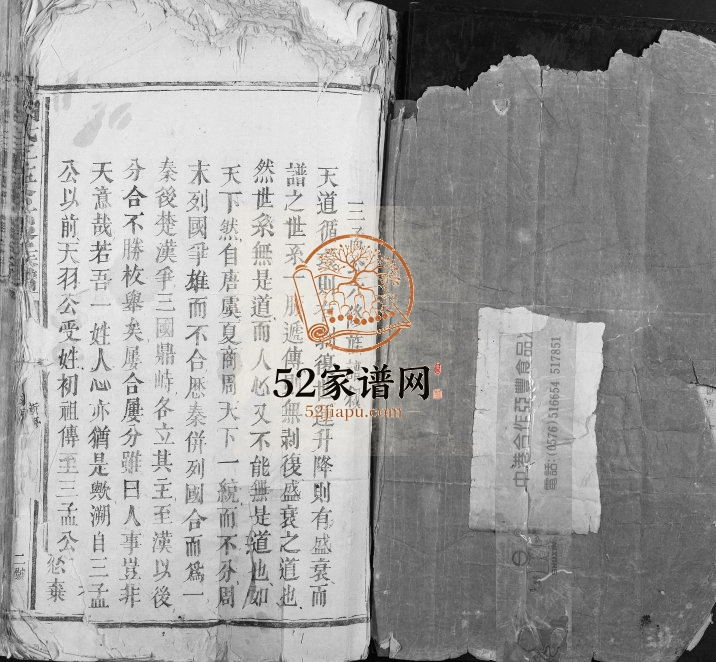 天道循則剝復運升降則有盛衰而
譜之世系一脈遞傳無剥復盛衰之道也
然世系無是道而人心又不能無是道也如
天下然自唐虞夏商周天下一統而不分周
末列國爭雄而不合歷秦併列國合而為一
秦後楚漢爭三國鼎峙各立其主至漢以後
分合不勝枚舉矣屢合屢分雖曰人事豈非
天意哉若吾一姓人心亦猶是歟溯自三孟
公以前天羽公受姓初祖傳至三孟公
52家谱网
52jiapu.com
中港合作亞豐食品
電話:(0576)516654 517851